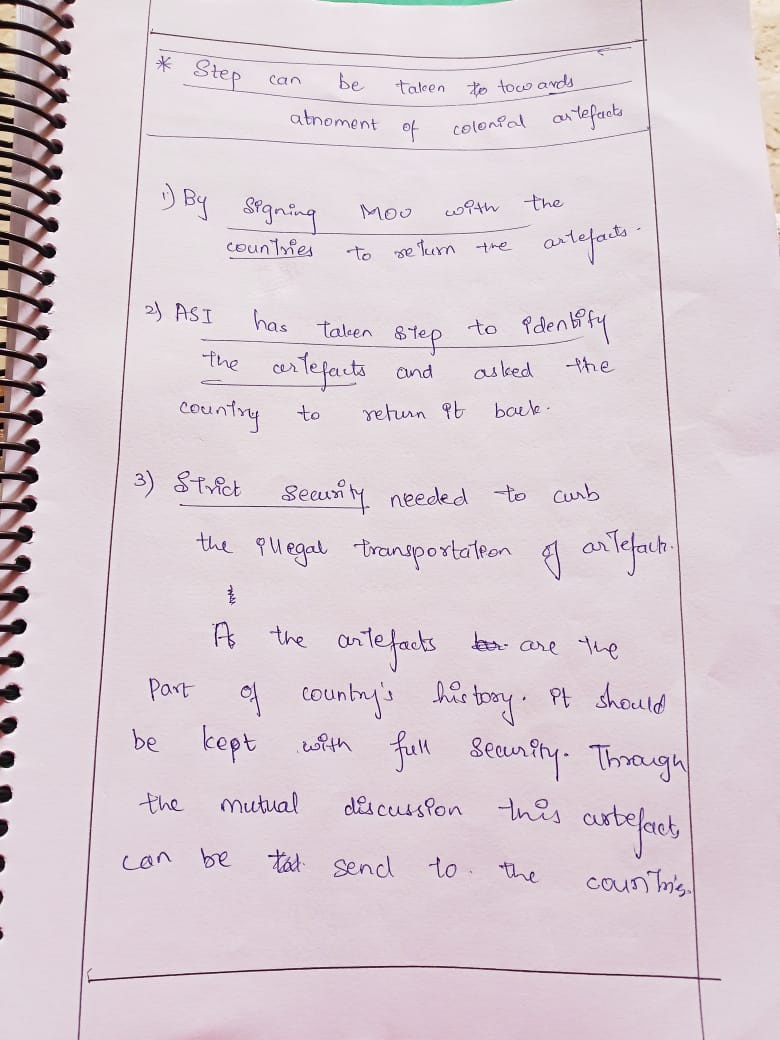 * Step can be taken to towards
atnoment of colonial artefacts
1) By signing MOU with the
countries to return the artefacts.
2) ASI has taken step to identify
the artefacts and asked the
country to return it back.
3) Strict security needed to curb
the illegal transportation of artefach.
As the artefacts are the
part of country's history. it should
be kept with full security. Through
the mutual discussion this artefact
can be send to the countris.